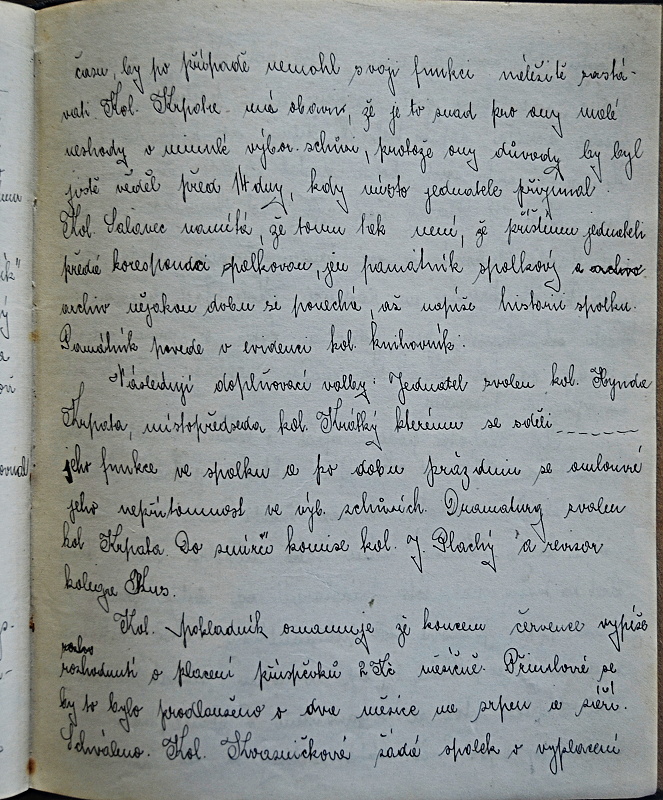 času, by po případě nemohl svoji funkci náležitě zastá-
vati. Kol. Krpata má obavu, že je to snad pro ony malé
neshody v minulé výbor. schůzi, protože ony důvody by byl
jistě věděl před 14 dny, kdy místo jednatele přijímal.
Kol. Salavec namítá, že tomu tak není, že příštímu jednateli
předá korespondci spolkovou, jen památník spolkový a archiv
archiv nějakou dobu si ponechá, až napíše historii spolku.
Památník povede v evidenci kol. knihovník.
Následují doplňovací volby: Jednatel zvolen kol. Hynda
Krpata, místopředseda kol. Krátký kterému se sdělí
jeho funkce ve spolku a po dobu prázdnin se omluví
jeho nepřítomnost ve výb. schůzích. Dramaturg zvolen
kol Krpata. Do smírčí komise kol. J. Plachý a revisor
kolega Kus.
Kol. pokladník oznamuje že koncem července vyprší
rozho
rozhodnutí o placení příspěvků 2 Kč měsíčně. Přimlouvá se
by to bylo prodlouženo o dva měsíce na srpen a září.
Schváleno. Kol. Kvasničková žádá spolek o vyplacení